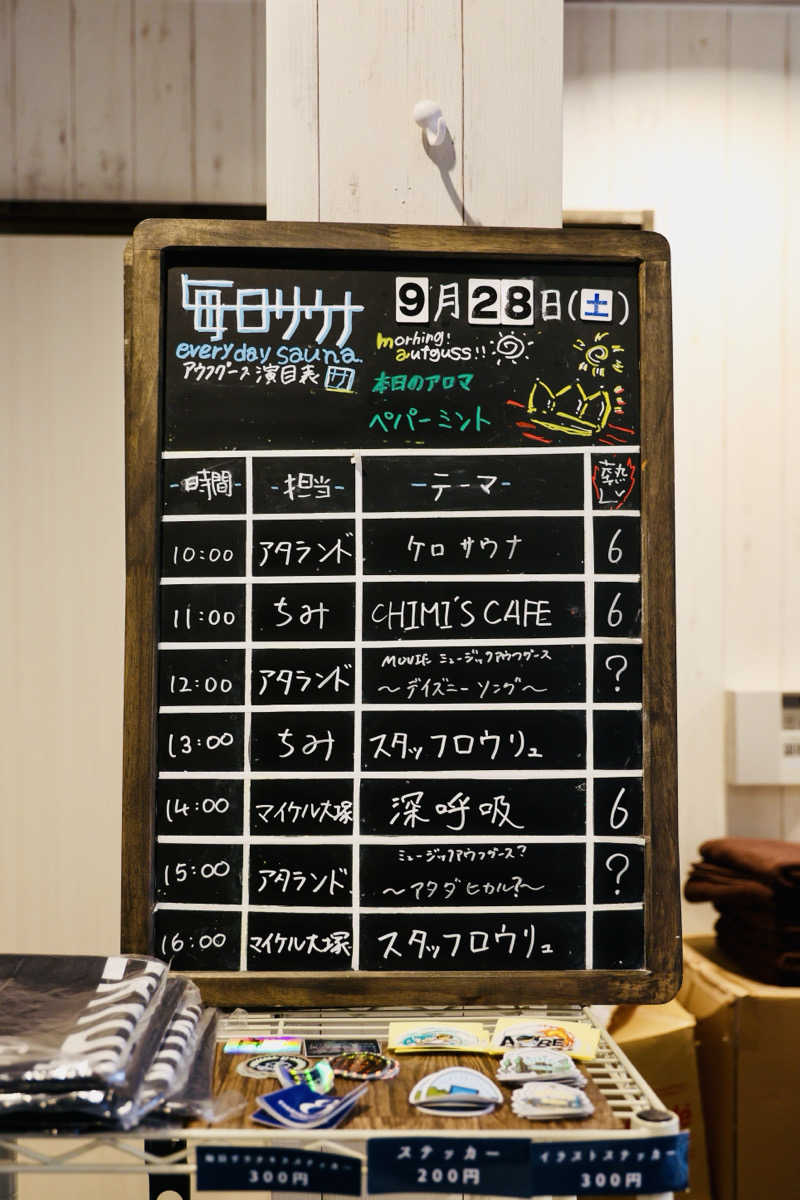 毎日サウナ
everyday sauna.
アウフグース演目表
9月28日(土)
morning!
aufguss!!
本日のアロマ
ペパーミント
時間 担当 テーマ 熱レベ
10:00 アタランド ケロサウナ 6
11:00 ちみ CHIMI'S CAFE 6
12:00 アタランド MOVIE ミュージックアウフグース ?
～ディズニーソング～
13:00 ちみ スタッフロウリュ
14:00 マイケル大塚 深呼吸 6
15:00 アタランド ミュージックアウフグース? ?
～アタダヒカル?～
16:00 マイケル大塚 スタッフロウリュ
300円
ステッカー
200円
イラストステッカー
300円